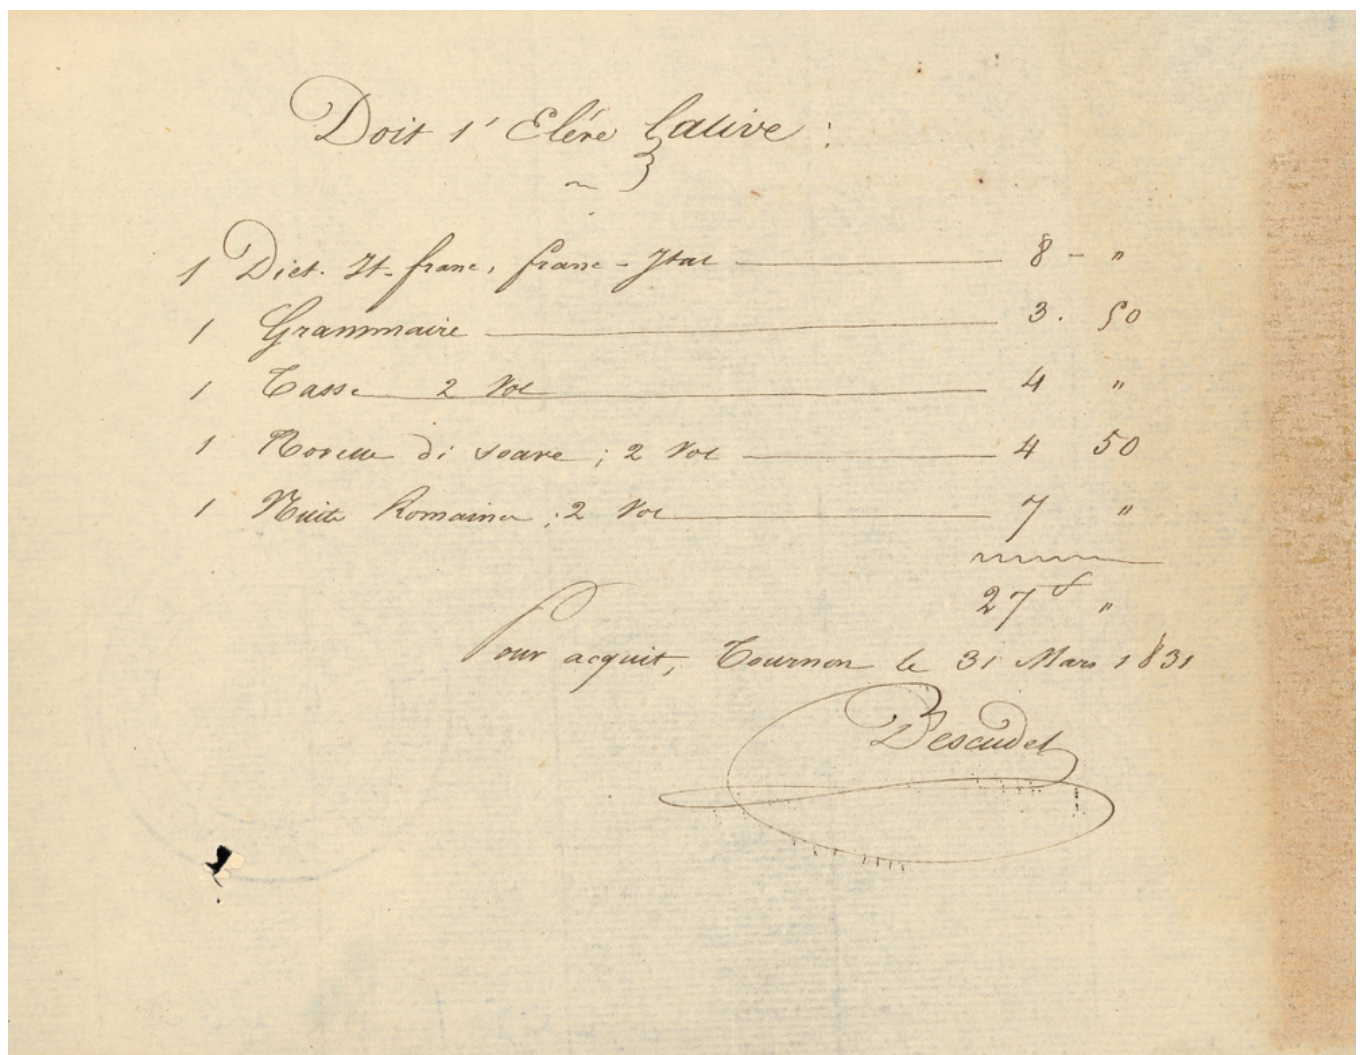 Doit l'Elève Lalive :
1 Dict. It-franc, franc-Ital 8 - "
1 Grammaire 3. 50
1 Tasse 2 Vol 4 "
1 Novelle di soave ; 2 Vol 4 50
1 Nuits Romaines ; 2 Vol 7 "
27 f "
Pour acquit, Tournon le 31 Mars 1831
Bescudet